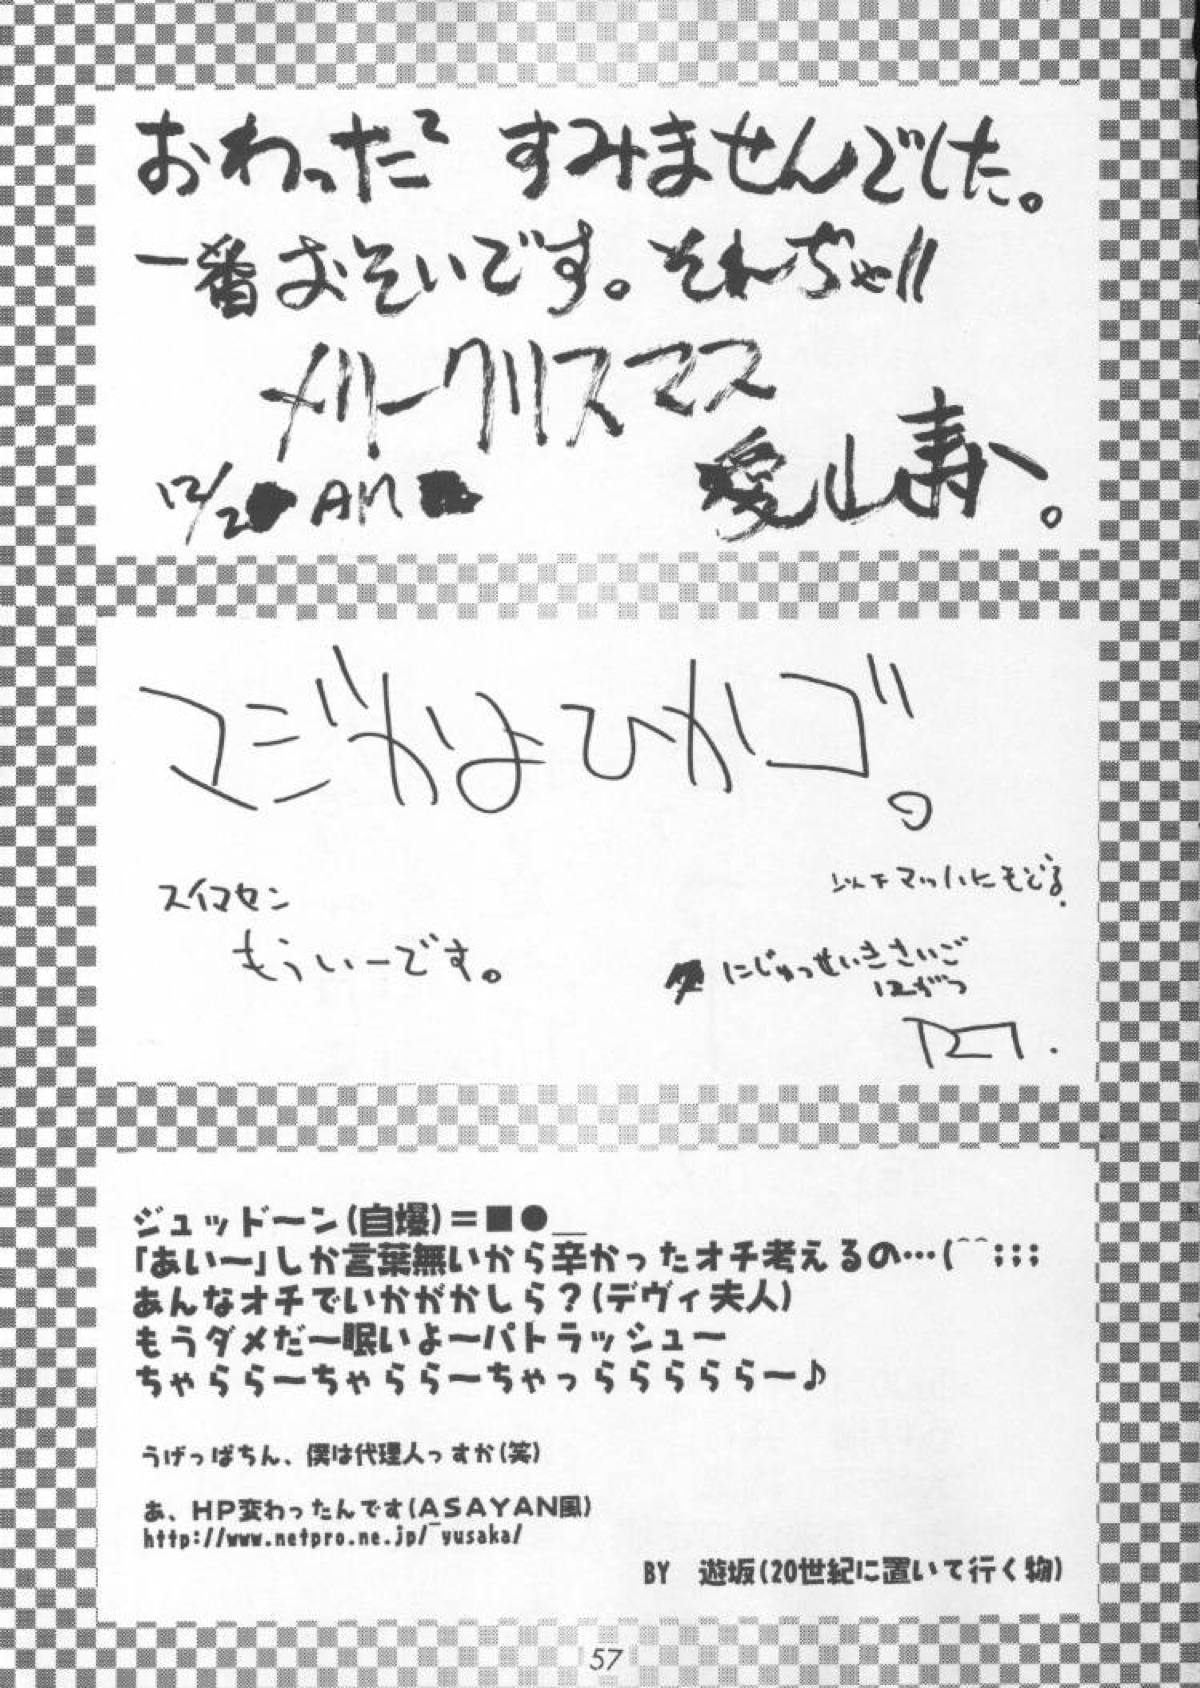 おわった～ すみませんでした。
一番おそいです。それぢゃ!!
メリークリスマス
12/2 AM
愛山寿〜。
マジかよひかゴ。
スイマセン
もういーです。
以下マッハにもどる。
にじゅっせいきさいご
12がつ
ジュッドーン(自爆)＝■●＿
「あいー」しか言葉無いから辛かったオチ考えるの…(^^;;;
あんなオチでいかがかしら？(デヴィ夫人)
もうダメだ～眠いよ～パトラッシュ～
ちゃらら～ちゃらら～ちゃっららららら～♪
うげっぱちん、僕は代理人っすか(笑)
あ、HP変わったんです(ASAYAN風)
http://www.netpro.ne.jp/~yusaka/
BY 遊坂(20世紀に置いて行く物)
57